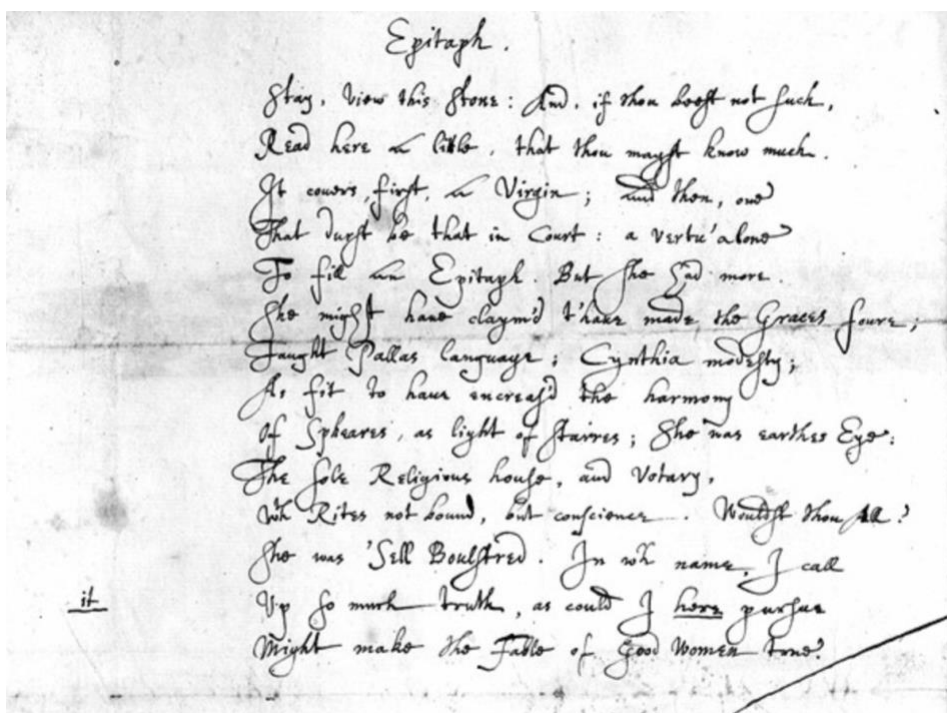 Epitaph.
Stay, view this Stone: And, if thou beest not such,
Read here a little, that thou mayst know much.
It covers, first, a Virgin; and then, one
That durst be that in Court: a vertu' alone
To fill an Epitaph But she had more.
She might have claym'd t'have made the Graces foure,
Taught Pallas language; Cynthia modesty;
As fit to have encreas'd the harmony
Of Spheares, as light of starres; she was earthes Eye:
The sole Religious house, and Votary,
Wth Rites not bound, but conscience. Wouldst thou All?
She was 'Sell Boulstred. In wch name, I call
it
Up so much truth, as could I here pursue
Might make the Fable of Good Women true.